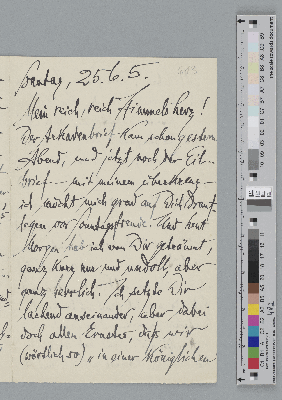 Sonntag, 25.6.5.
Mein reich, reich Himmelsherz!
Der Arkonabrief kam schon gestern
Abend, und jetzt noch der Eil-
brief – mit meinem
ich möcht mich grad an Dich
legen vor Sonntagsfreude. Und heut
Morgen hab ich von Dir geträumt,
ganz kurz nur und undeutl., aber
ganz herrlich. Ich setzte Dir
lachend auseinander, aber dabei
doch allen Ernstes, daß wir
(wörtlich so) „in einer Königlichen